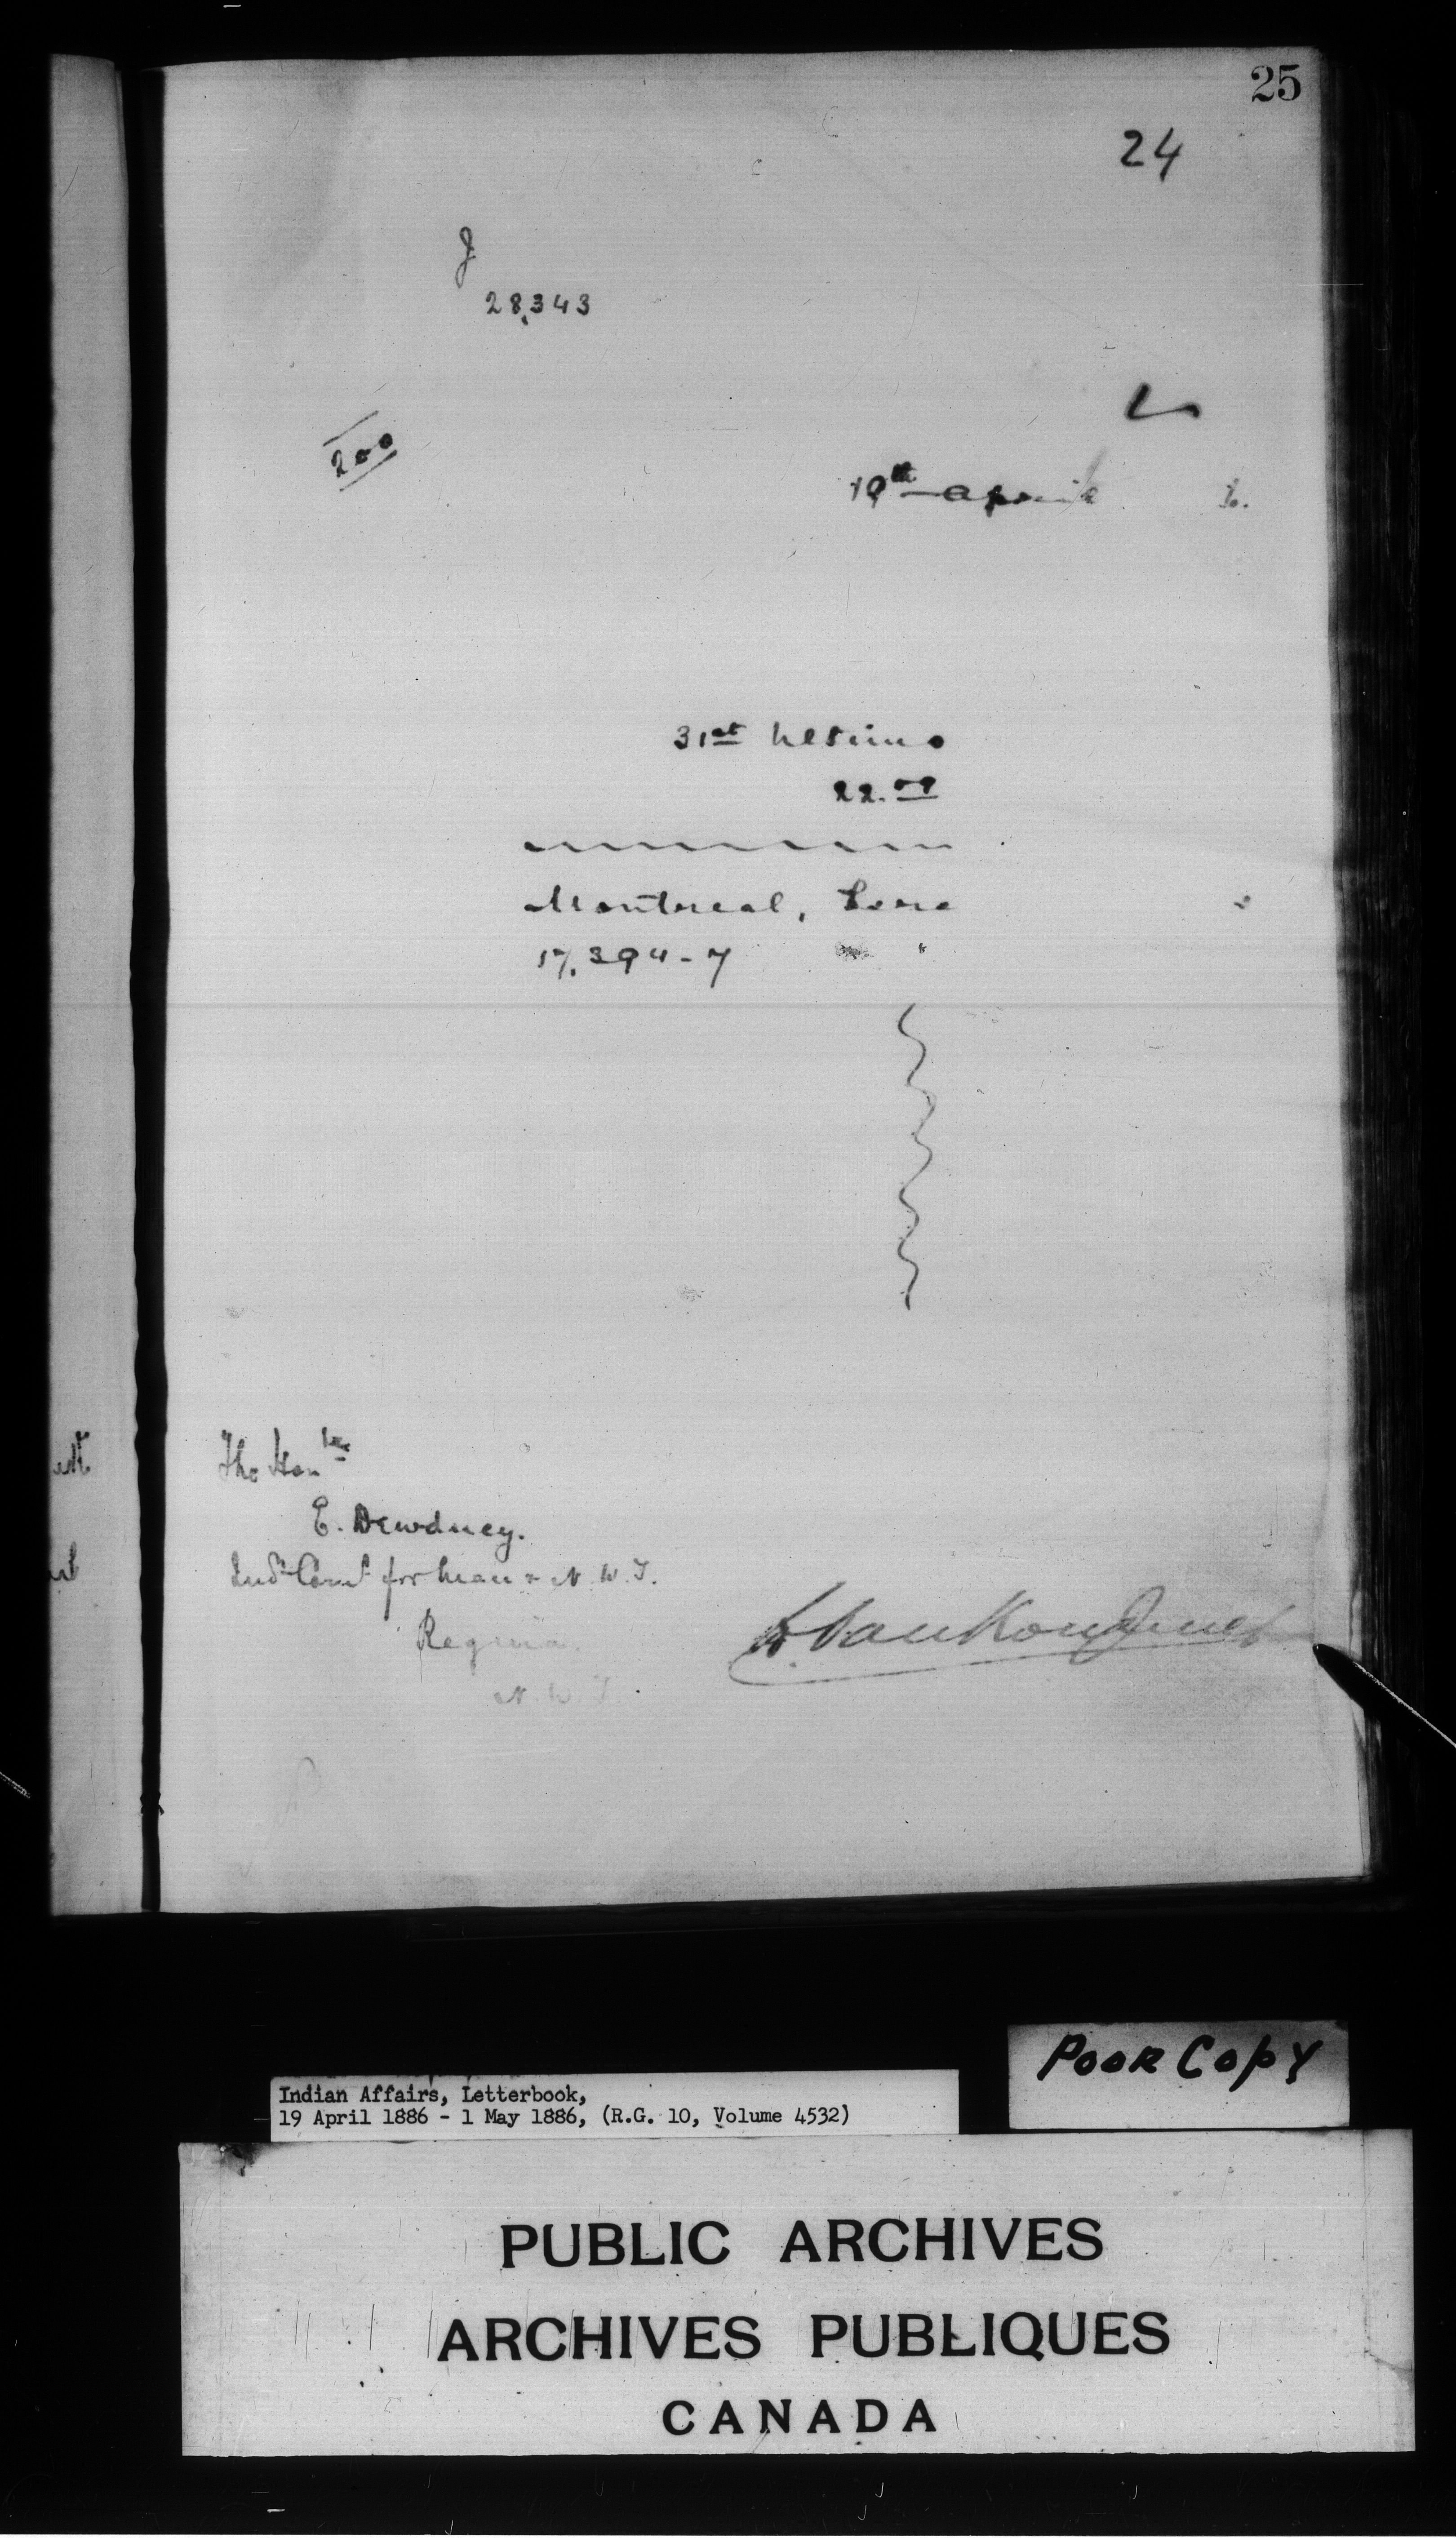 25
24
J
28,343
200
19th April 6.
31st Ultimo
22.00
Montreal, here
17,394-7 "
The Honble
E. Dewdney.
Indn Comr for Man & N.W.T.
Regina.
N.W.T.
L. VanKoughnet
POOR COPY
Indian Affairs, Letterbook,
19 April 1886 - 1 May 1886, (R.G. 10, Volume 4532)
PUBLIC ARCHIVES
ARCHIVES PUBLIQUES
CANADA